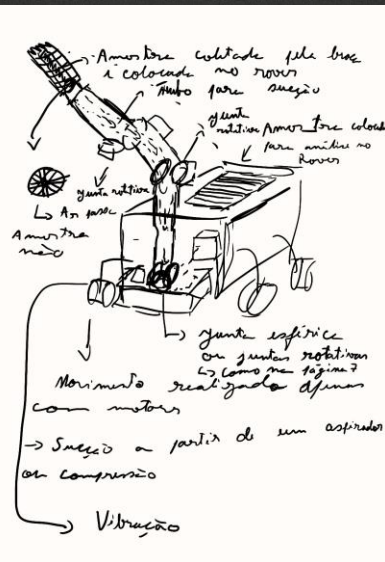 Amostra coletada pela broca
é colocada no rover
Tubo para sucção
junta
rotativa
Amostra colocada
para análise no
Rover
junta rotativa
↳ Ar passa
Amostra
não
↳ junta esférica
ou juntas rotativas
↳ como na página 7
Movimento realizado apenas
com motores
→ Sucção a partir de um aspirador
ou compressão
→ Vibração